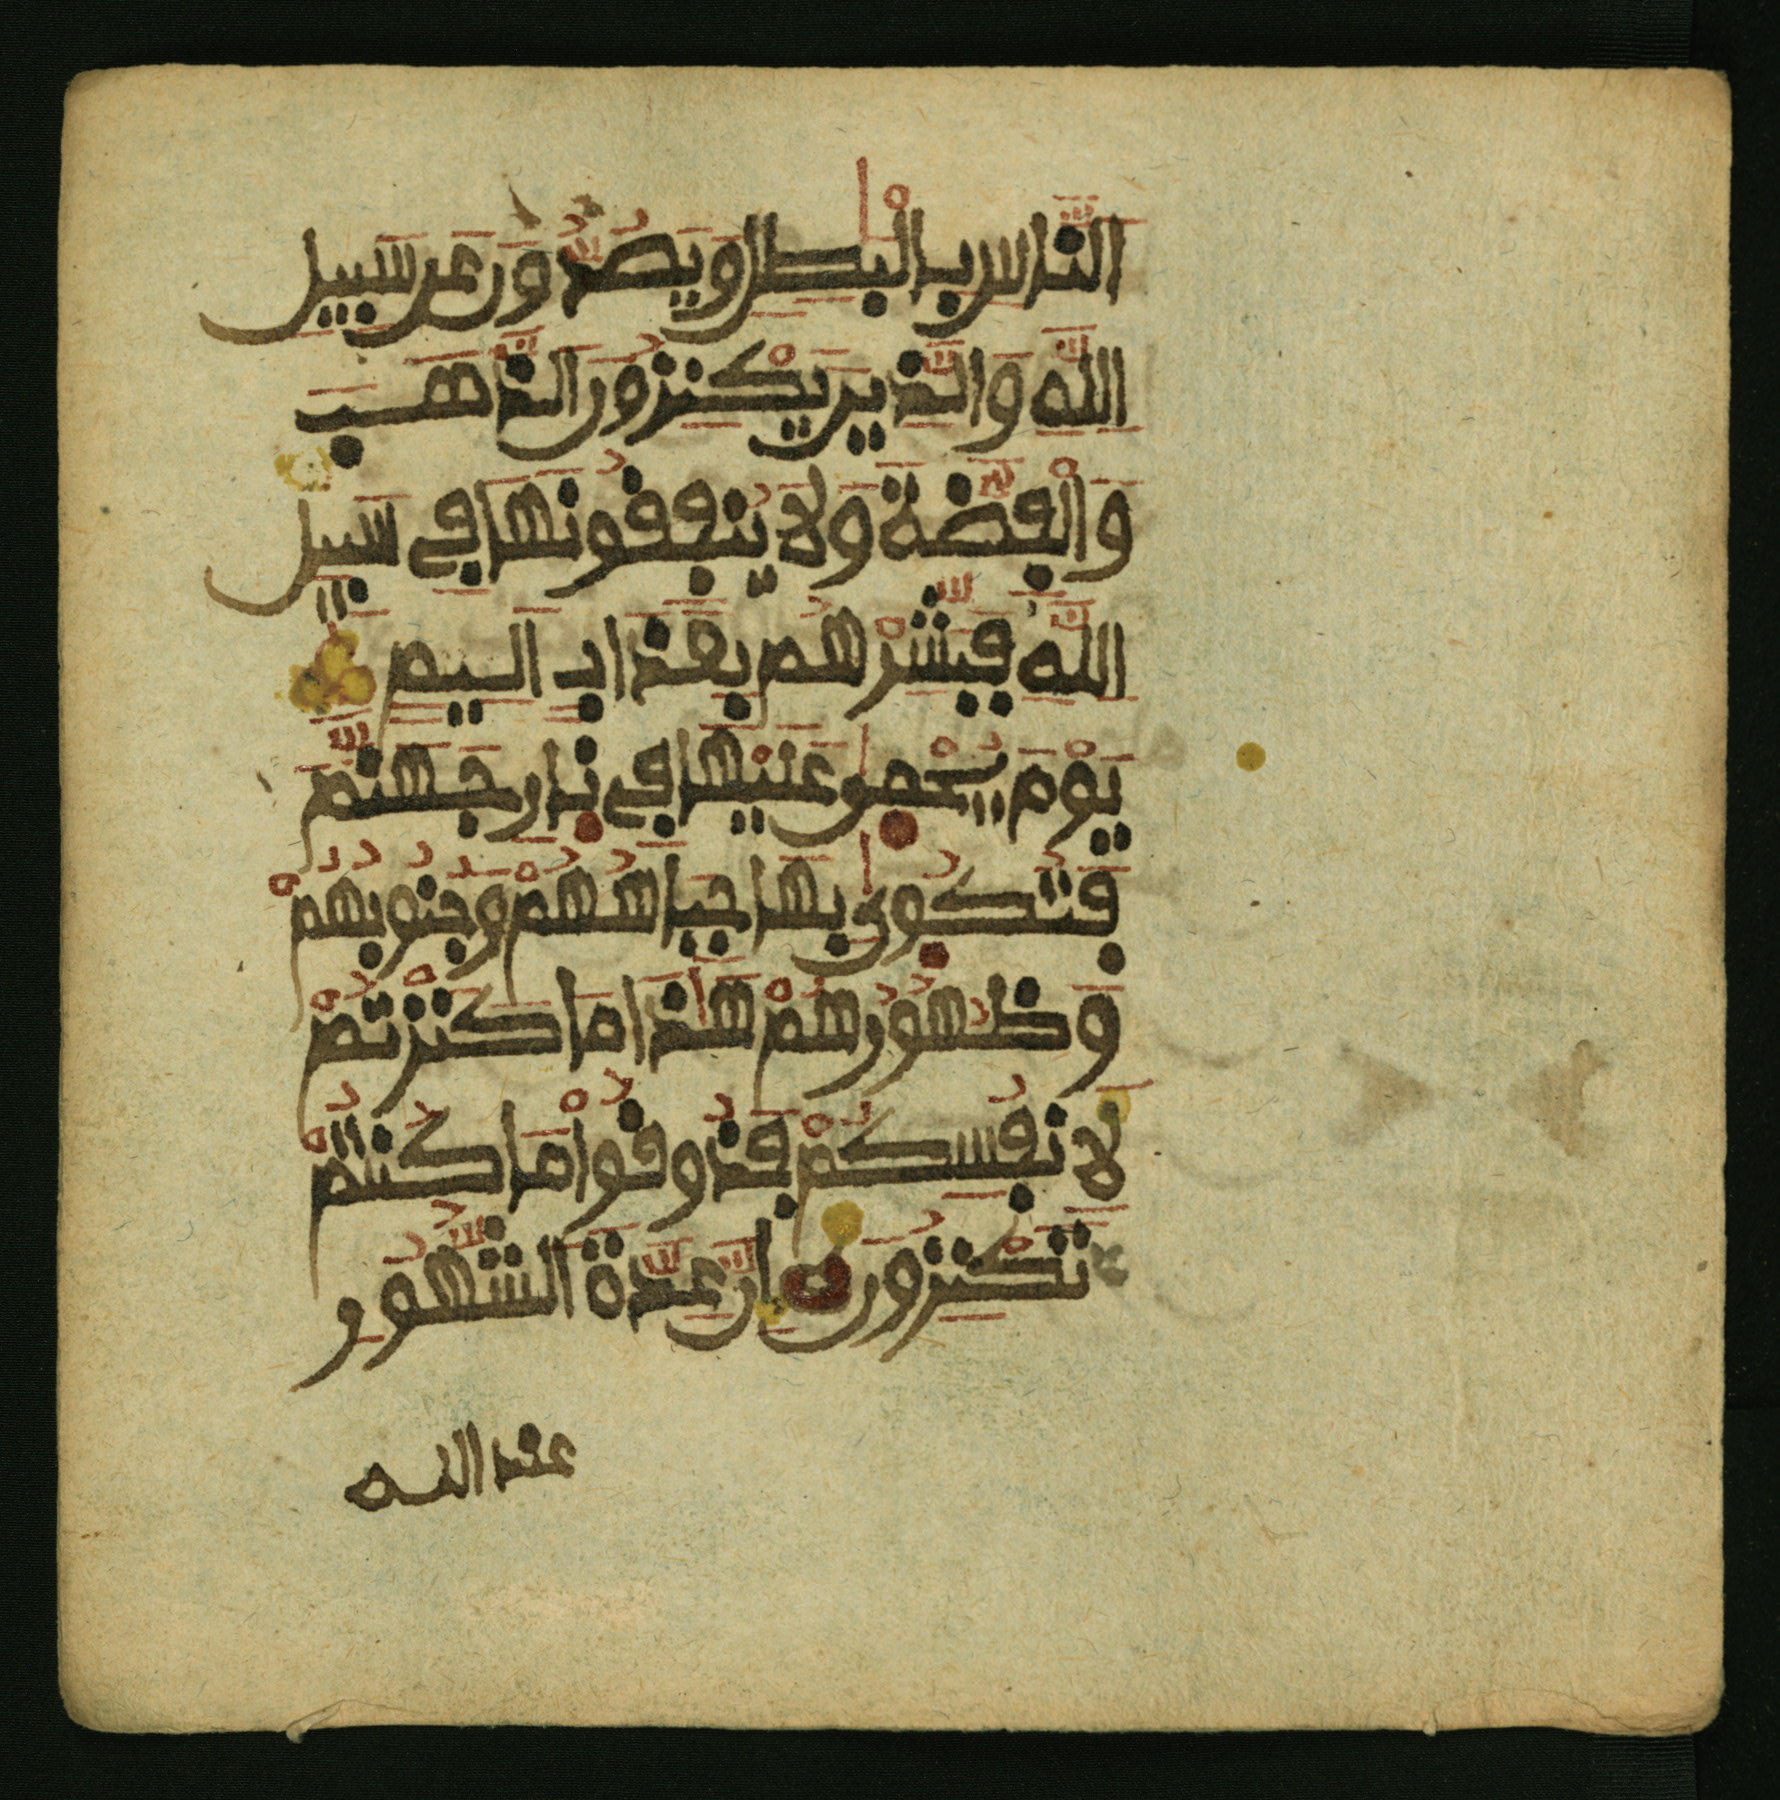 النَّاسِ بِالْبَٰطِلِ وَيَصُدُّونَ عَن سَبِيلِ
اللَّهِ وَالَّذِينَ يَكْنِزُونَ الذَّهَبَ
وَالْفِضَّةَ وَلَا يُنفِقُونَهَا فِي سَبِيلِ
اللَّهِ فَبَشِّرْهُم بِعَذَابٍ أَلِيمٍ
يَوْمَ يُحْمَىٰ عَلَيْهَا فِي نَارِ جَهَنَّمَ
فَتُكْوَىٰ بِهَا جِبَاهُهُمْ وَجُنُوبُهُمْ
وَظُهُورُهُمْ هَٰذَا مَا كَنَزْتُمْ
لِأَنفُسِكُمْ فَذُوقُوا مَا كُنتُمْ
تَكْنِزُونَ إِنَّ عِدَّةَ الشُّهُورِ
عند الله